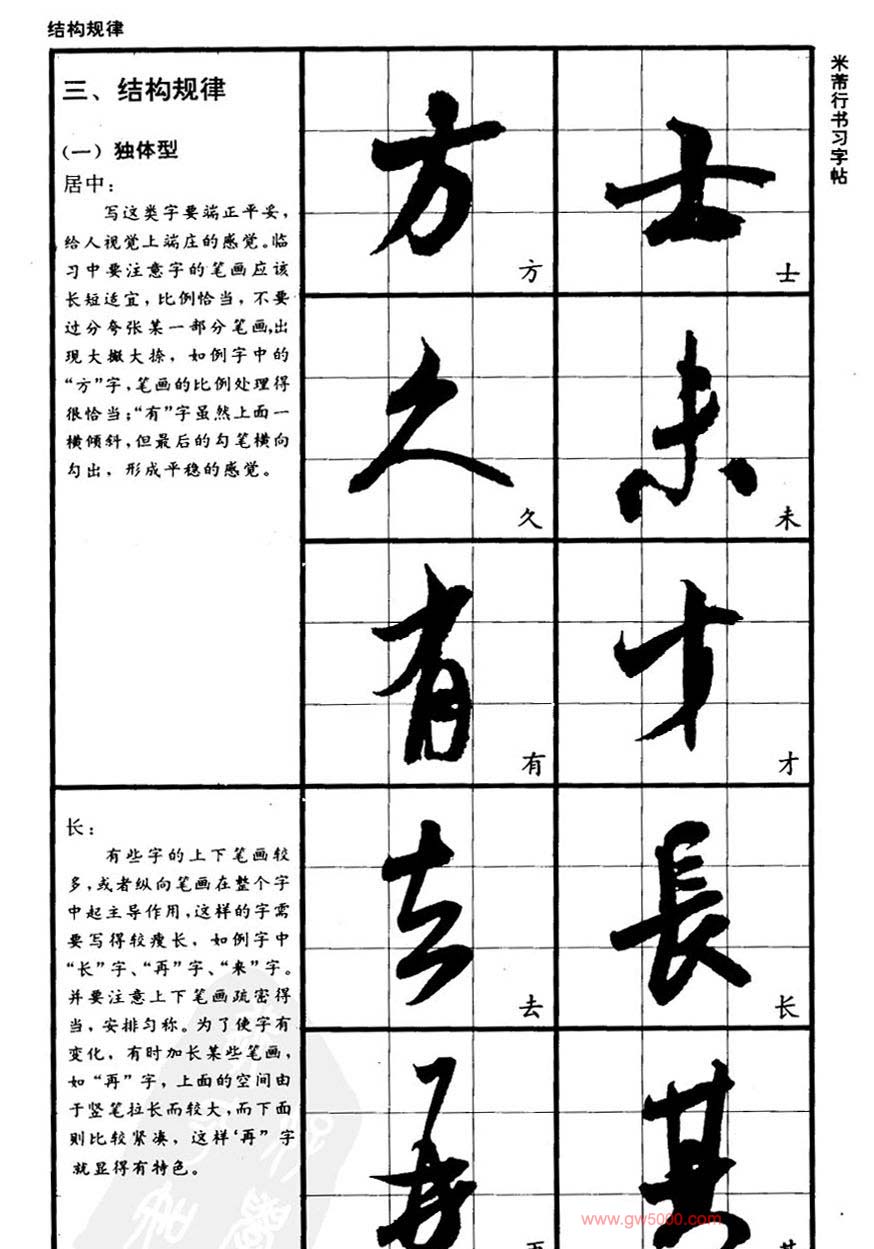 结构规律
米芾行书习字帖
三、结构规律
（一）独体型
居中：
写这类字要端正平妥，
给人视觉上端庄的感觉。临
习中要注意字的笔画应该
长短适宜，比例恰当，不要
过分夸张某一部分笔画，出
现大撇大捺，如例字中的
“方”字，笔画的比例处理得
很恰当；“有”字虽然上面一
横倾斜，但最后的勾笔横向
勾出，形成平稳的感觉。
方
方
士
士
久
久
未
未
有
有
才
才
长：
有些字的上下笔画较
多，或者纵向笔画在整个字
中起主导作用，这样的字需
要写得较瘦长，如例字中
“长”字、“再”字、“来”字。
并要注意上下笔画疏密得
当，安排匀称。为了使字有
变化，有时加长某些笔画，
如“再”字，上面的空间由
于竖笔拉长而较大，而下面
则比较紧凑，这样‘再”字
就显得有特色。
去
去
長
长
再
其
www.gw5000.com